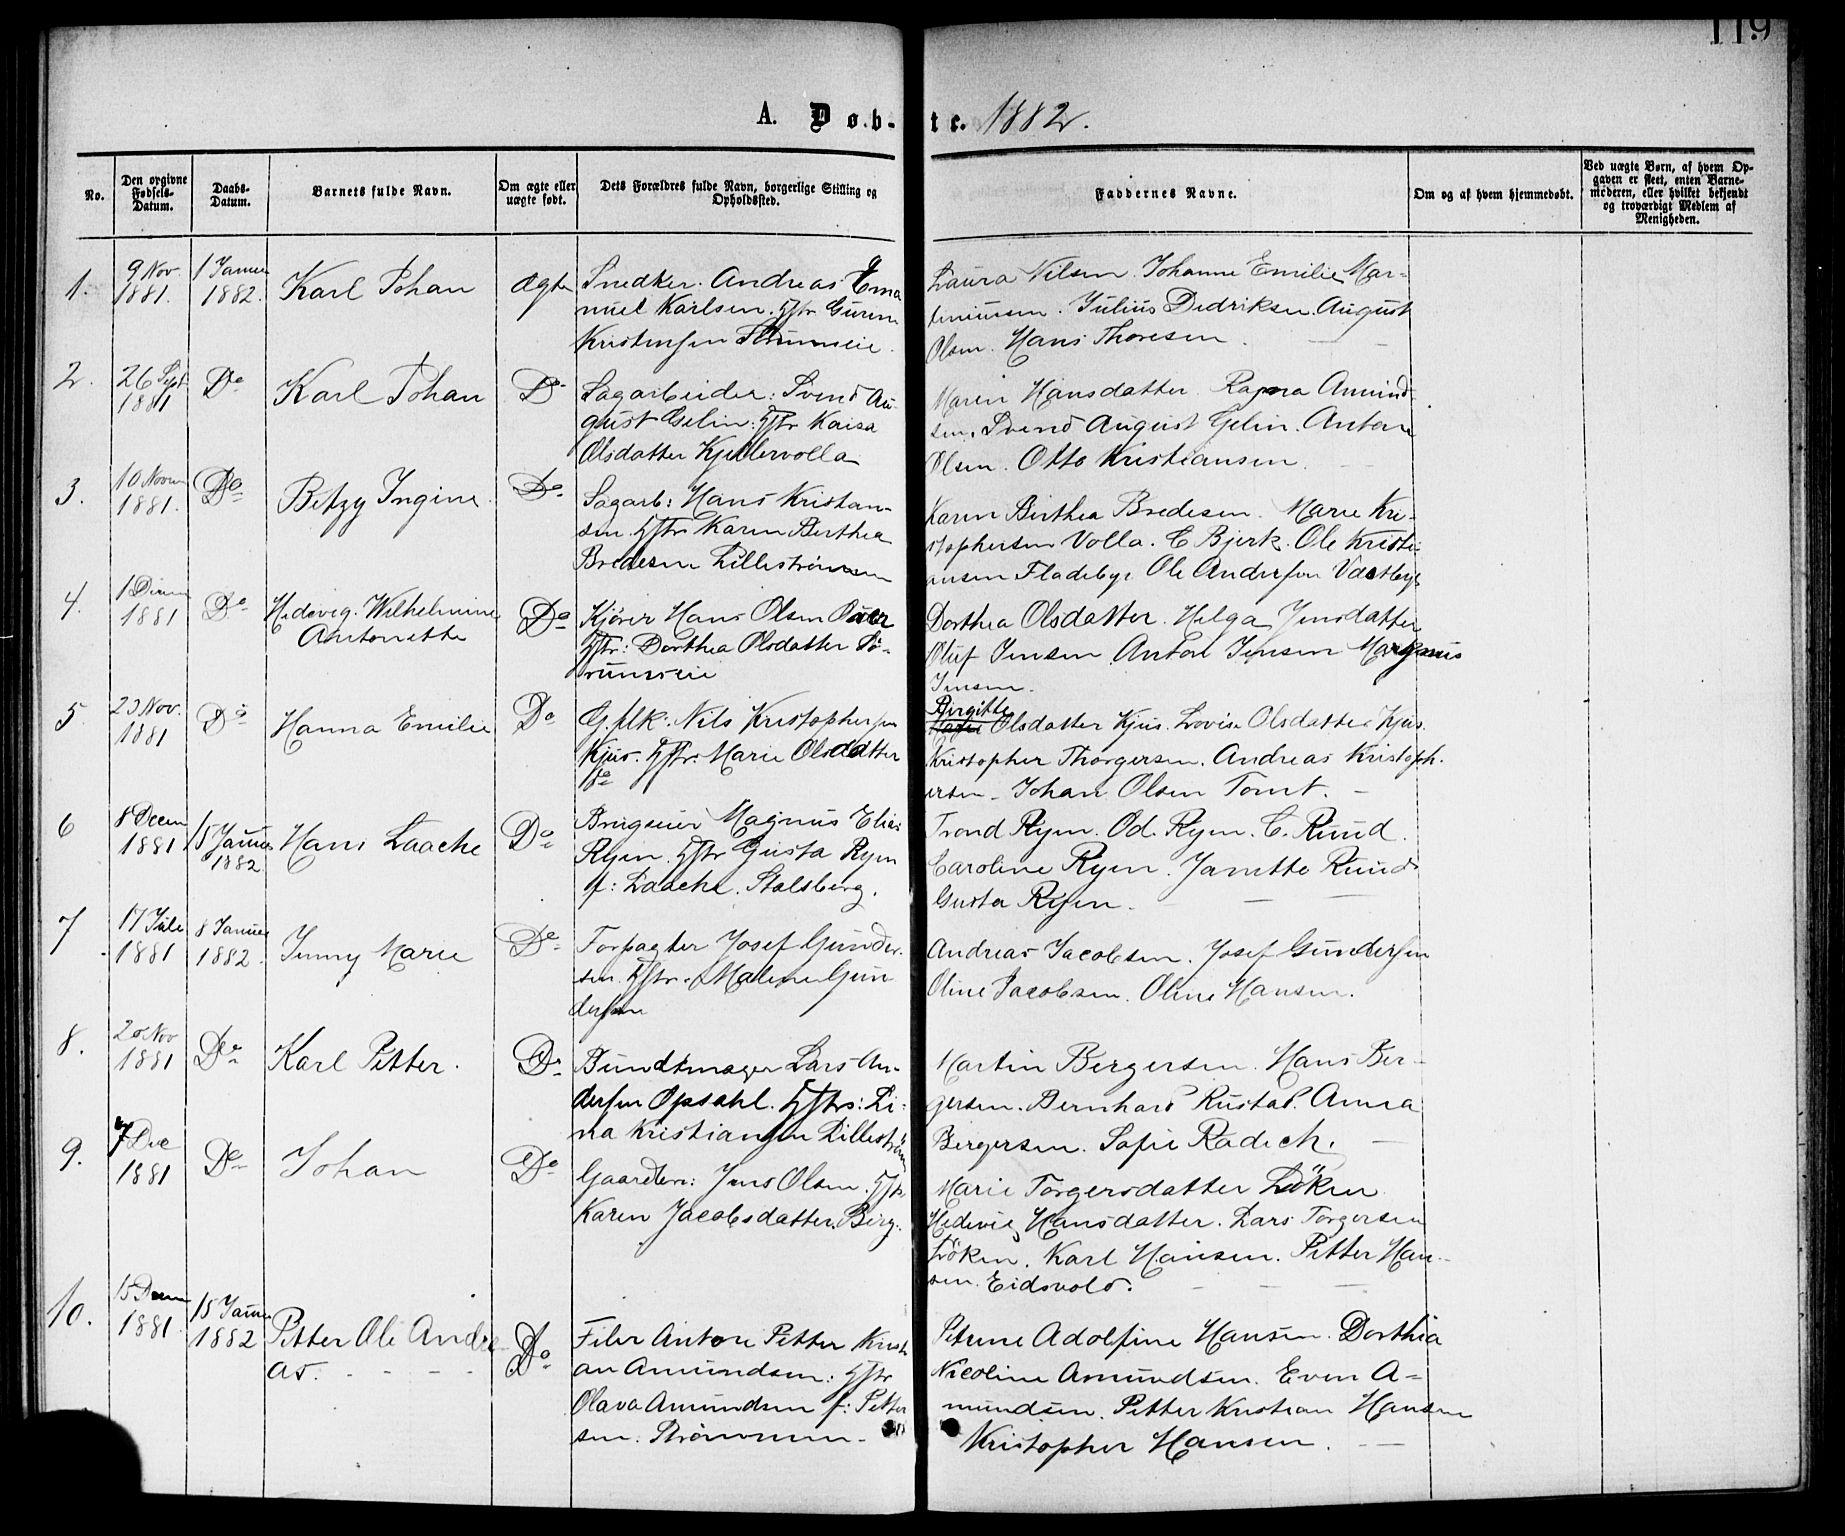 119
A. Døb-te. 1882.
No.
Den opgivne Fødsels-Datum.
Daabs-Datum.
Barnets fulde Navn.
Om ægte eller uægte født.
Dets Forældres fulde Navn, borgerlige Stilling og Opholdssted.
Faddernes Navne.
Om og af hvem hjemmedøbt.
Ved uægte Børn, af hvem Opgaven er skeet, enten Barnemoderen, eller hvilket bekjendt og troværdigt Medlem af Menigheden.
1. 9 Nov. 1881. 1 Januar 1882. Karl Johan ægte
Snedker. Andreas Ema
nuel Karlsen. Hstr Guren
Kristensen
Laura Nilsen. Johanne Emilie Mar-
tiniusen. Julius Dedriksen. August
Olsen. Hans Thoresen
2. 26 Sept. 1881 Do Karl Johan Do
Sagarbeider: Svend Au-
gust Gelin: Hstr Kaisa
Olsdatter Kjellervolla
Maren Hansdatter Ragna Amund-
sen. Svend August Gelin. Anton
Olsen. Otto Kristiansen.
3. 10 Novem 1881. Do Betzy Ingine. Do.
Sagarb: Hans Kristian-
sen. Hstr Karen Berthea
Bredesen Lillestrømmen
Karen Berthea Bredesen. Marie Kri-
stophersen Volla. C Bjerk. Ole Kristi-
ansen Fladeby. Ole Andersen Vestby
4. 1 Decem 1881 Do Hedevig. Wilhelmine
Antonette Do
Kjører Hans Olsen
Hstr: Dorthea Olsdatter Sø-
rumseie
Dorthea Olsdatter. Helga Jensdatter
Oluf Jensen Anton Jensen Magnus
Jensen.
5 23 Nov. 1881 Do Hanna Emilie Do
G. flk: Nils Kristophersen
Kjus. Hstr: Marie Olsdatter
Do
Birgitte
Olsdatter Kjus. Lovise Olsdatter Kjus.
Kristopher Thorgersen. Andreas Kristoph-
ersen - Johan Olsen Tomt. -
6 8 Decem 1881 15 Januar 1882 Hans Laache Do
Brugseier Magnus Elias
Ryen. Hstr Gusta Ryen
f: Laache. Stalsberg.
Trond Ryen. Od. Ryen. C. Ruud.
Caroline Ryen. Janette Ruud
Gusta Ryen.
7 17 Juli 1881 8 Januar 1882. Jenny Marie Do
Forpagter Josef Gunder-
sen Hstr. Malene Gun
dersen
Andreas Jacobsen. Josef Gundersen
Oline Jacobsen. Oline Hansen.
8. 20 Nov 1881 Do Karl Petter. Do
Bundtmager Lars An-
dersen Opsahl. Hstr: Li-
na Kristiansen Lillestrøm
Martin Bergersen. Hans Ber-
gersen. Bernhard Rustad. Anna
Bergersen. Sofie Radich.
9. 7 Dec 1881 Do Johan Do
Gaardbr: Jens Olsen. Hstr.
Karen Jacobsdatter. Berg.
Marie Torgersdatter Løken
Hedevig Hansdatter. Lars Torgersen
Løken. Karl Hansen. Petter Han-
sen. Eidsvold.
10. 15 Decem 1881. 15 Januar 1882 Petter Ole Andre
as. - - - - Do
Filer Antone Petter Kristi
an Amundsen: Hstr
Olava Amundsen f: Petter
sen. Strømmen.
Petrine Adolfine Hansen. Dorthea
Nicoline Amundsen. Even A-
mundsen. Petter Kristian Hansen
Kristopher Hansen.